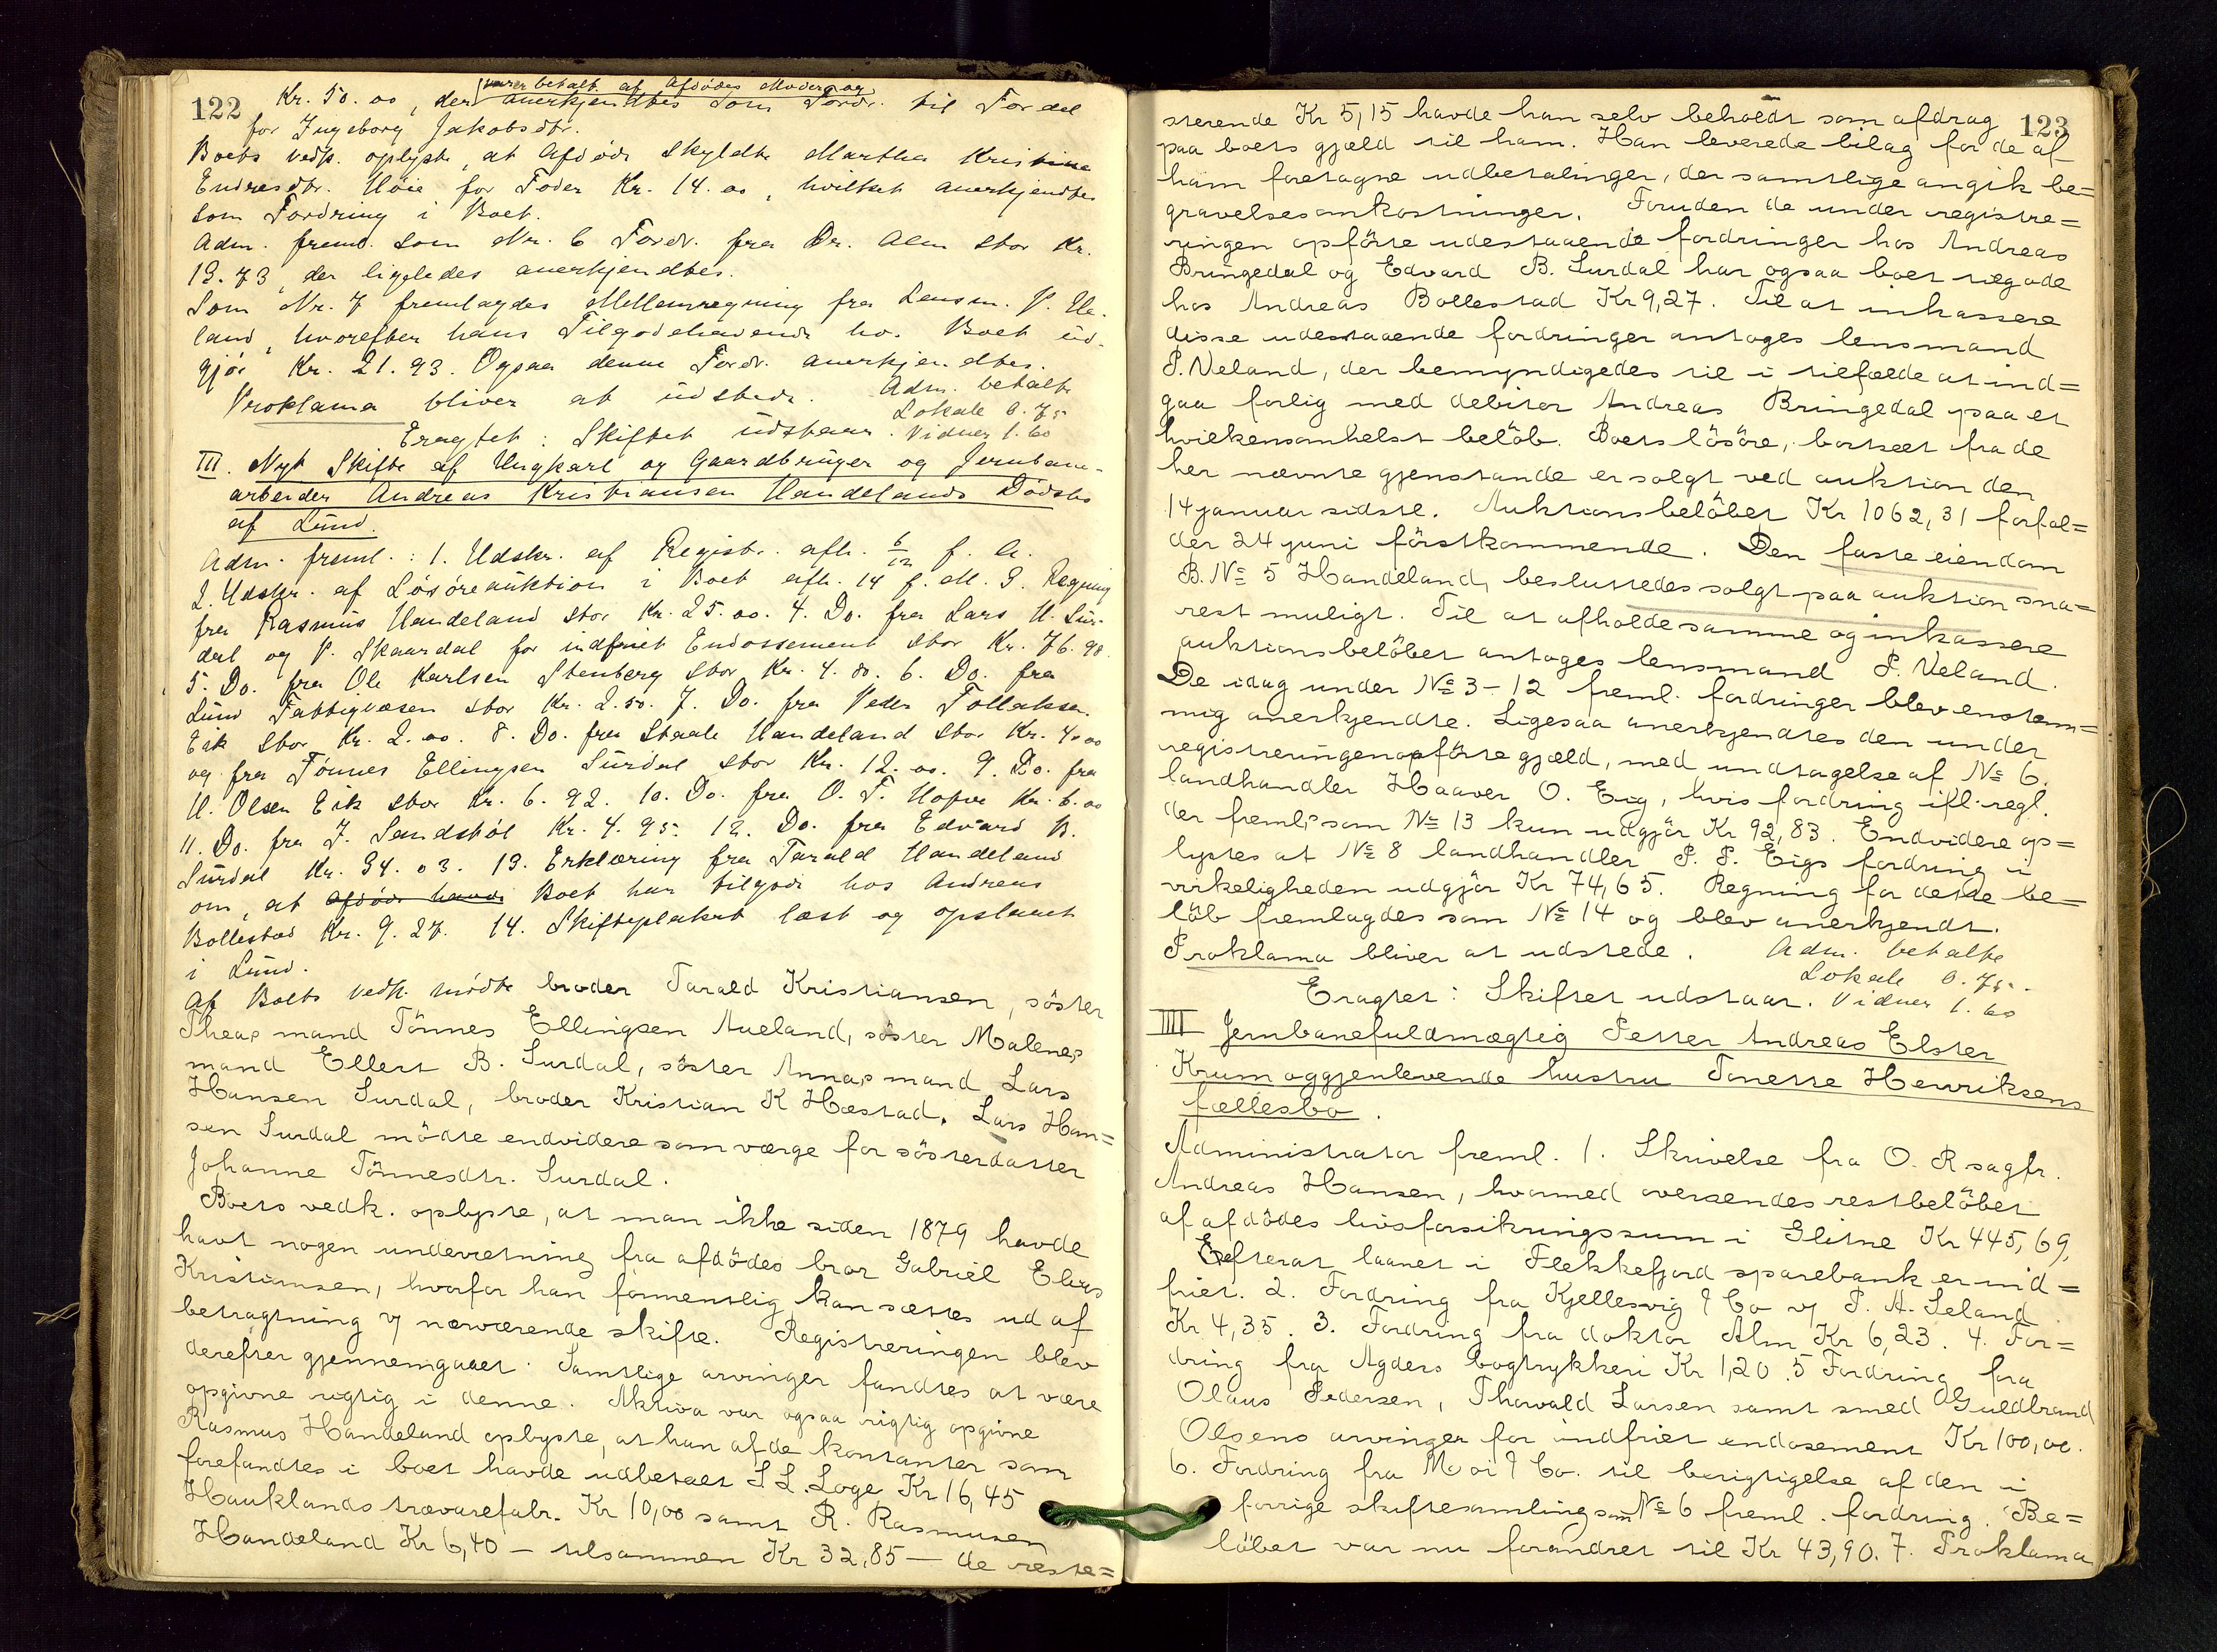 122
varer betalt af Afdødes Moder og
Kr. 50.00, der anerkjendtes som Fordr. til Fordel
for Ingeborg Jakobsdtr.
Boets vedk. oplyste, at Afdøde skyldte Martha Kristine
Endresdtr. Høie for Foder Kr. 14.00, hvilket anerkjendtes
som Fordring i Boet.
Adm. freml. som Nr. 6 Fordr. fra Dr. Alm stor Kr.
19.73, der ligeledes anerkjendtes.
Som Nr. 7 fremlagdes Mellemregning fra Lensm. P. Ve-
land, hvorefter hans Tilgodehavende ho. Boet ud-
gjør Kr. 21.93. Ogsaa denne Fordr. anerkjendtes.
Proklama bliver at udstede. Adm. betalte
Lokale 0.75
Eragtet: Skiftet udstaar. Vidner 1.60
III. Nyt Skifte af Ungkarl og Gaardbruger og Jernbane-
arbeider Andreas Kristiansen Handelands Dødsbo
af Lund.
Adm. freml.: 1. Udskr. af Registr. afh. 6/12 f. A.
2. Udskr. af Løsøreauktion i Boet afh. 14 f. M. 3. Regning
fra Rasmus Handeland stor Kr. 25.00. 4. Do. fra Lars H. Sur-
dal og P. Skaardal for indfriet Endossement stor Kr. 76.90.
5. Do. fra Ole Karlsen Stenberg stor Kr. 4.80. 6. Do. fra
Lund Fattigvæsen stor Kr. 2.50. 7. Do. fra Peder Tollaksen
Eik stor Kr. 2.00. 8. Do. fra Staale Handeland stor Kr. 4.00
og fra Tønnes Ellingsen Surdal stor Kr. 12.00. 9. Do. fra
H. Olsen Eik stor Kr. 6.92. 10. Do. fra O. T. Hofve Kr. 6.00
11. Do. fra J. Sandstøl Kr. 4.95. 12. Do. fra Edvard B.
Surdal Kr. 34.03. 13. Erklæring fra Tarald Handeland
om, at afdøde havde Boet har tilgode hos Andreas
Bollestad Kr. 9.27. 14. Skifteplakat læst og opslaaet
i Lund.
Af Boets vedk. mødte broder Tarald Kristiansen, söster
Theas mand Tönnes Ellingsen Aueland, söster Malenes
mand Ellert B. Surdal, söster Annas mand Lars
Hansen Surdal, broder Kristian K Hæstad. Lars Han=
sen Surdal mödte endvidere som værge for sösterdatter
Johanne Tönnesdtr. Surdal.
Boets vedk. oplyste, at man ikke siden 1879 havde
havt nogen underretning fra afdödes bror Gabriel Elias
Kristiansen, hvorfor han formentlig kan sættes ud af
betragtning v/ nærværende skifte. Registreringen blev
derefter gjennemgaaet. Samtlige arvinger fandtes at være
opgivne rigtig i denne. Aktiva var ogsaa rigtig opgivne
Rasmus Handeland oplyste, at han af de kontanter som
forefandtes i boet havde udbetalt S L. Loge Kr 16,45
Hauklands trævarefabr. Kr 10,00 samt R. Rasmusen
Handeland Kr 6,40 – tilsammen Kr 32,85 – de reste=
123
sterende Kr 5,15 havde han selv beholdt som afdrag
paa boets gjæld til ham. Han leverede bilag for de af
ham foretagne udbetalinger, der samtlige angik be=
gravelsesomkostninger. Foruden de under registre=
ringen opförte udestaaende fordringer hos Andreas
Bringedal og Edvard B. Surdal har ogsaa boet tilgode
hos Andreas Bollestad Kr 9,27. Til at inkassere
disse udestaaende fordringer antages lensmand
P. Veland, der bemyndigedes til i tilfælde at ind=
gaa forlig med debitor Andreas Bringedal paa et
hvilkensomhelst belöb. Boets lösöre, bortseet fra de
her nævnte gjenstande er solgt ved auktion den
14 januar sidstl. Auktionsbelöbet Kr 1062,31 forfal=
der 24 juni förstkommende. Den faste eiendom
B. No 5 Handeland, besluttedes solgt paa auktion sna=
rest muligt. Til at afholde samme og inkassere
auktionsbelöbet antages lensmand P. Veland.
De idag under No 3–12 freml. fordringer blev enstem=
mig anerkjendte. Ligesaa anerkjendtes den under
registreringen opförte gjæld, med undtagelse af No 6.
landhandler Haaver O. Eig, hvis fordring ifl. regl.
der freml. som No 13 kun udgjör Kr 92,83. Endvidere op=
lystes at No 8 landhandler P. P. Eigs fordring i
virkeligheden udgjör Kr 74,65. Regning for dette be=
löb fremlagdes som No 14 og blev anerkjendt.
Proklama bliver at udstede. Adm. betalte
Lokale 0.75.
Eragtet: Skiftet udstaar. Vidner 1.60
IIII Jernbanefuldmægtig Petter Andreas Elster
Krum og gjenlevende hustru Tonette Henriksens
fællesbo.
Administrator freml. 1. Skrivelse fra O. R sagfr.
Andreas Hansen, hvormed oversendes restbelöbet
af afdödes livsforsikringssum i Glitne Kr 445,69,
Efterat laanet i Flekkefjord sparebank er ind=
friet. 2. Fordring fra Kjellesvig & Co v/ P. A. Seland
Kr 4,35. 3. Fordring fra doktor Alm Kr 6,23. 4. For=
dring fra Agders bogtrykkeri Kr 1,20. 5 Fordring fra
Olaus Pedersen, Thorvald Larsen samt smed Guldbrand
Olsens arvinger for indfriet endosement Kr 100,00.
6. Fordring fra Moi & Co. til berigtigelse af den i
forrige skiftesamling som No 6 freml. fordring. Be=
löbet var nu forandret til Kr 43,90. 7. Proklama